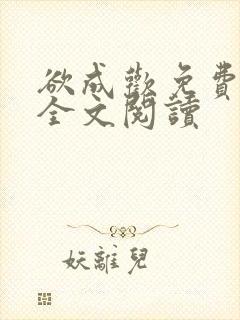 欲成歡免費
全文閱讀
妖離兒